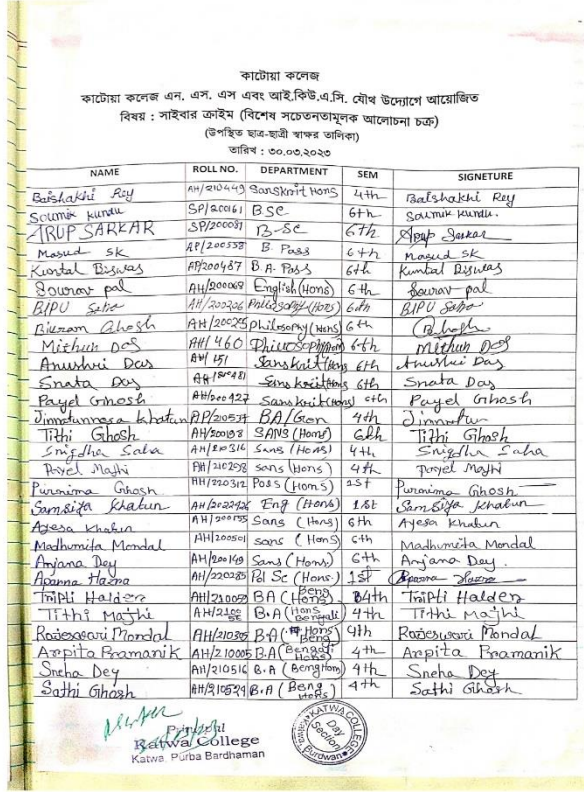 কাটোয়া কলেজ
কাটোয়া কলেজ এন. এস. এস এবং আই.কিউ.এ.সি. যৌথ উদ্যোগে আয়োজিত
বিষয় : সাইবার ক্রাইম (বিশেষ সচেতনতামূলক আলোচনা চক্র)
(উপস্থিত ছাত্র-ছাত্রী স্বাক্ষর তালিকা)
তারিখ : ৩০.০৩.২০২৩
NAME ROLL NO. DEPARTMENT SEM SIGNETURE
Baishakhi Rey AH/210449 Sanskrit Hons 4th Baishakhi Rey
Soumik Kundu SP/200161 B.SC 6th Soumik Kundu.
ARUP SARKAR SP/200081 B-SC 6th Arup Sarkar
Masud SK AP/200558 B. Pass 6th Masud SK
Kuntal Biswas AP/200487 B.A. Pass 6th Kuntal Biswas
Sourav pal AH/200068 English (Hons) 6th Sourav pal
BIPU Saha AH/200206 Philosophy (Hons) 6th BIPU Saha
Bikram Ghosh AH/200295 philosophy (Hons) 6th
Mithun Das AH/460 Philosophy 6th Mithun Das
Anushri Das AH/151 Sanskrit (Hons) 6th Anushri Das
Snata Das Sanskrit (Hons) 6th Snata Das
Payel Ghosh AH/200427 Sanskrit (Hons) 6th Payel Ghosh
Jinnatunnesa Khatun AP/210574 BA/Gen 4th Jinnatun
Tithi Ghosh AH/200198 SANS (Hons) 6th Tithi Ghosh
Snigdha Saha AH/210316 Sans (Hons) 4th Snigdha Saha
Payel Majhi AH/210298 sans (Hons) 4th Payel Majhi
Purnima Ghosh AH/220312 Poss (Hons) 1st Purnima Ghosh
Samsifa Khatun AH/2022426 Eng (Hons) 1st Samsifa Khatun
Ayesa Khatun AH/200155 Sans (Hons) 6th Ayesa Khatun
Madhumita Mondal AH/200501 sans (Hons) 6th Madhumita Mondal
Anjana Dey AH/200149 Sans (Hons) 6th Anjana Dey.
Aparna Hazra AH/220285 Pol Sc (Hons.) 1st Aparna Hazra
Tripti Halder AH/210059 BA (Beng Hons) 4th Tripti Halder
Tithi Majhi B.A (Hons Bengali) 4th Tithi Majhi
Rajeswari Mondal AH/210305 B.A (Hons Beng) 4th Rajeswari Mondal
Arpita Pramanik AH/210005 B.A (Bengali Hons) 4th Arpita Pramanik
Sneha Dey AH/210516 B.A (Beng Hons) 4th Sneha Dey
Sathi Ghosh AH/210529 B.A (Beng Hons) 4th Sathi Ghosh
Principal
Katwa College
Katwa, Purba Bardhaman
KATWA COLLEGE
Day
Section
Burdwan